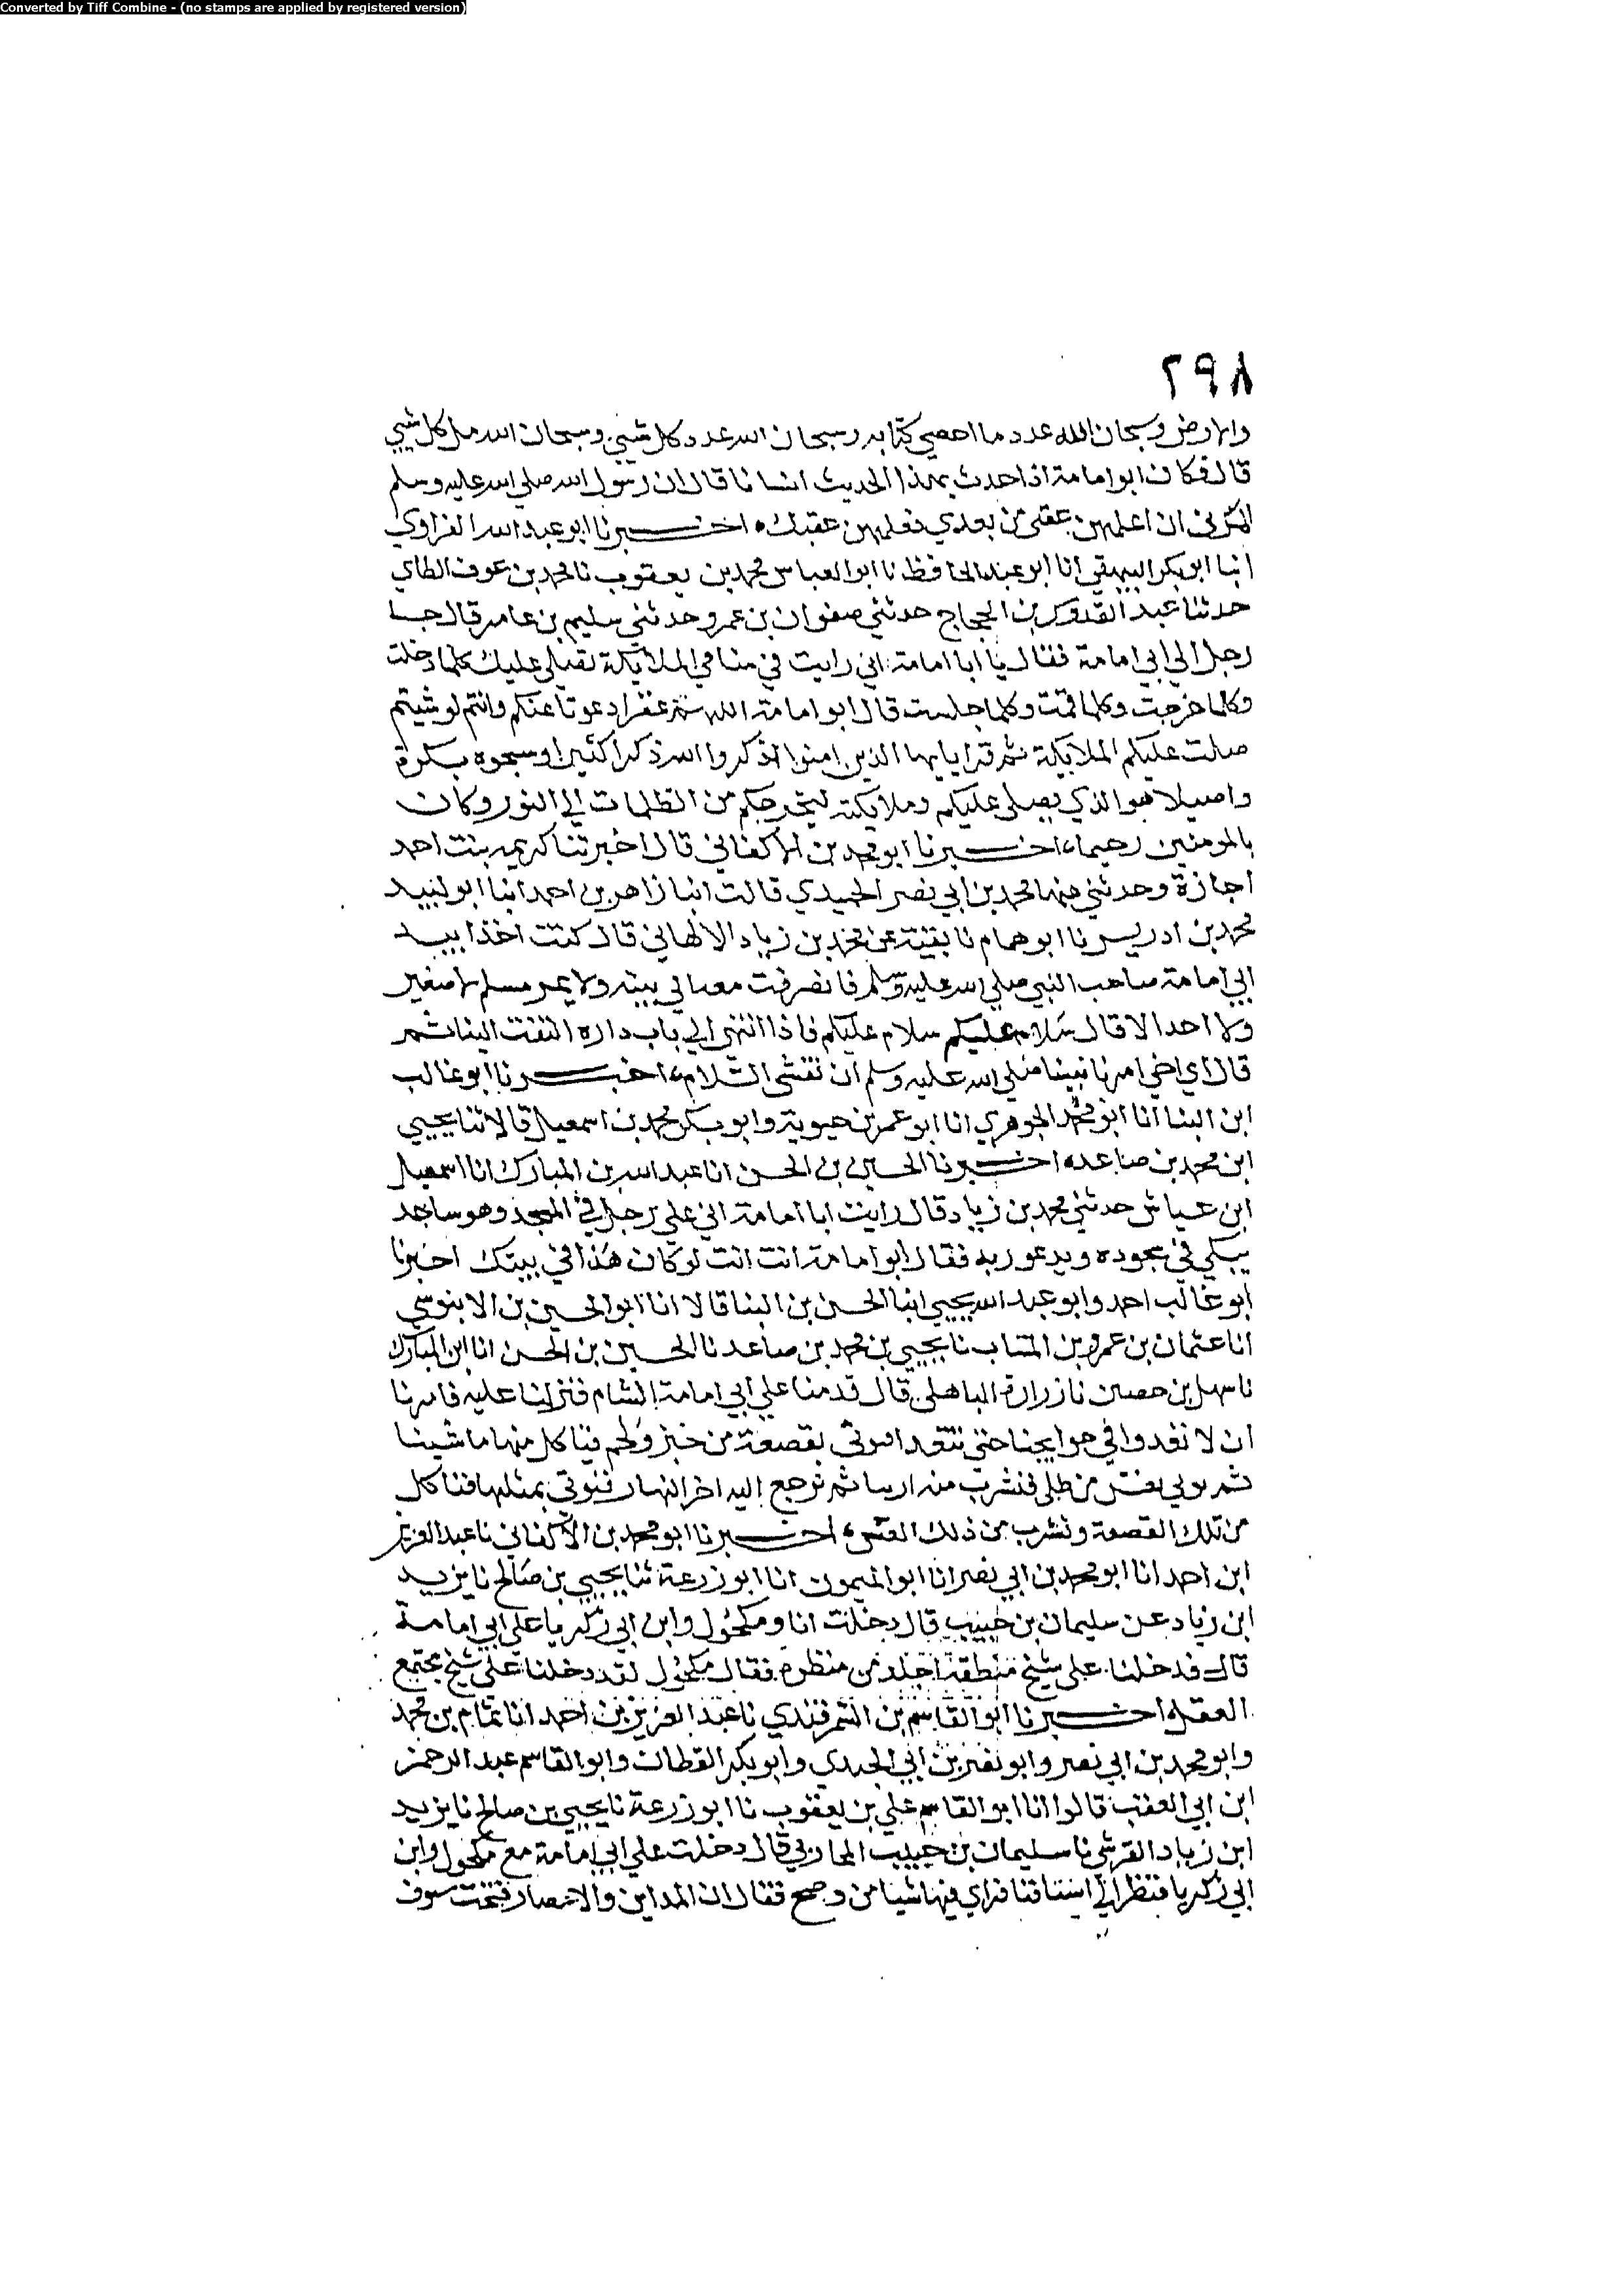 Converted by Tiff Combine - (no stamps are applied by registered version)
٢٩٨
والارض وسبحان الله عدد ما احصي كتابه وسبحان الله عدد كل شيي وسبحان الله مل كل شيي
قال فكان ابو امامة اذا حدث بهذا الحديث انسانا قال ان رسول الله صلي الله عليه وسلم
امرني ان اعلمهن عقبي من بعدي فعلمهن عقبك ه اخبرنا ابو عبد الله الفراوي
انبا ابو بكر البيهقي انا ابو عبد الله الحافظ نا ابو العباس محمد بن يعقوب نا محمد بن عوف الطاي
حدثنا عبد القدوس بن الحجاج حدثني صفوان بن عمرو حدثني سليم بن عامر قال جا
رجل الي ابي امامة فقال يا ابا امامة اني رايت في منامي الملايكة تصلي عليك كلما دخلت
وكلما خرجت وكلما قمت وكلما جلست قال ابو امامة اللهم غفرا دعونا عنكم وانتم لو شيتم
صلت عليكم الملايكة ثم قرا يايها الذين امنوا اذكروا الله ذكرا كثيرا وسبحوه بكرة
واصيلا هو الذي يصلي عليكم وملايكته ليخرجكم من الظلمات الي النور وكان
بالمومنين رحيما ه اخبرنا ابو محمد بن الاكفاني قال اخبرتنا كريمه بنت احمد
اجازة وحدثني عنها محمد بن ابي نصر الحميدي قالت انبا زاهر بن احمد انبا ابو لبيد
محمد بن ادريس نا ابو همام نا بقية عن محمد بن زياد الالهاني قال كنت اخذا بيد
ابي امامة صاحب النبي صلي الله عليه وسلم فانصرفت معه الي بيته ولا يمر بمسلم لا صغير
ولا احد الا قال سلام عليكم سلام عليكم فاذا انتهي الي باب داره التفت الينا ثم
قال اي اخي امرنا نبينا صلي الله عليه وسلم ان نفشي السلام ه اخبرنا ابو غالب
ابن البنا انا ابو محمد الجوهري انا ابو عمر بن حيوية وابو بكر محمد بن اسمعيل قالا ثنا يحيي
ابن محمد بن صاعد ه اخبرنا الحسين بن الحسن انا عبد الله بن المبارك انا اسمعيل
ابن عياش حدثني محمد بن زياد قال رايت ابا امامة اتي علي رجل في المسجد وهو ساجد
يبكي في سجوده ويدعو ربه فقال ابو امامة انت انت لو كان هذا في بيتك اخبرنا
ابو غالب احمد وابو عبد الله يحيي ابنا الحسن بن البنا قالا انا ابو الحسين بن الابنوسي
انا عثمان بن عمرو بن المنتاب نا يحيي بن محمد بن صاعد نا الحسين بن الحسن انا ابن المبارك
نا سهل بن حصين نا زرارة الباهلي قال قدمنا علي ابي امامة الشام فنزلنا عليه فامرنا
ان لا نغدوا في حوايجنا حتي نتغدا فنوتي بقصعة من خبز ولحم فياكل منها ما شينا
ثم يوتي بعس من طلي فنشرب منه ارسا ثم نرجع اليه اخر النهار فنوتي بمثلها فناكل
من تلك القصعة ونشرب من ذلك العس ه اخبرنا ابو محمد بن الاكفاني نا عبد العزيز
ابن احمد انا ابو محمد بن ابي نصر انا ابو الميمون انا ابو زرعة ثنا يحيي بن صالح نا يزيد
ابن زياد عن سليمان بن حبيب قال دخلت انا ومكحول وابن ابي زكريا علي ابي امامة
قال فدخلنا علي شيخ منطقه اجلد من منظره فقال مكحول لقد دخلنا علي شيخ مجتمع
العقل اخبرنا ابو القاسم بن السمرقندي نا عبد العزيز بن احمد انا تمام بن محمد
وابو محمد بن ابي نصر وابو نصر بن الجندي وابو بكر القطان وابو القاسم عبد الرحمن
ابن ابي العقب قالوا انا ابو القاسم علي بن يعقوب نا ابو زرعة نا يحيي بن صالح نا يزيد
ابن زياد القرشي نا سليمان بن حبيب المحاربي قال دخلت علي ابي امامة مع مكحول وابن
ابي زكريا فنظر الي اسيافنا فراي فيها شيا من وضح فقال ان المداين والامصار فتحت سوف